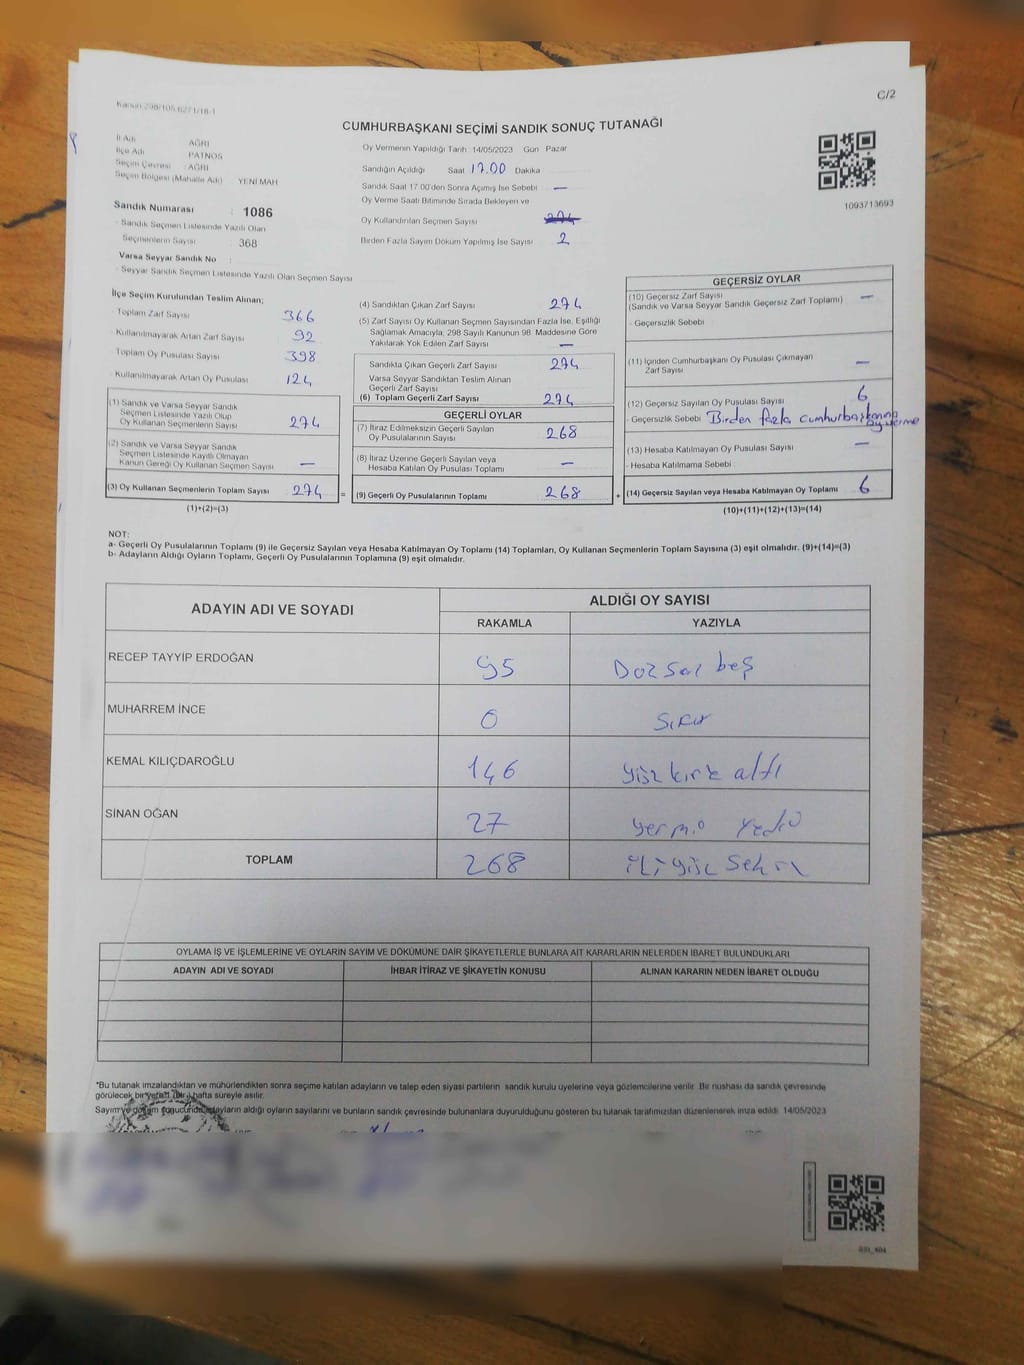 C/2
Kanun 298/105,6271/18-1
CUMHURBAŞKANI SEÇİMİ SANDIK SONUÇ TUTANAĞI
İl Adı AĞRI
İlçe Adı PATNOS
Seçim Çevresi : AĞRI
Seçim Bölgesi (Mahalle Adı) YENİ MAH
Sandık Numarası : 1086
Sandık Seçmen Listesinde Yazılı Olan
Seçmenlerin Sayısı : 368
Varsa Seyyar Sandık No :
Seyyar Sandık Seçmen Listesinde Yazılı Olan Seçmen Sayısı
Oy Vermenin Yapıldığı Tarih 14/05/2023 Gün Pazar
Sandığın Açıldığı Saat 17.00 Dakika
Sandık Saat 17:00'den Sonra Açımış İse Sebebi —
Oy Verme Saati Bitiminde Sırada Bekleyen ve
Oy Kullandırılan Seçmen Sayısı
Birden Fazla Sayım Döküm Yapılmış İse Sayısı 2
1093713693
İlçe Seçim Kurulundan Teslim Alınan;
Toplam Zarf Sayısı 366
Kullanılmayarak Artan Zarf Sayısı 92
Toplam Oy Pusulası Sayısı 398
Kullanılmayarak Artan Oy Pusulası 124
(1) Sandık ve Varsa Seyyar Sandık
Seçmen Listesinde Yazılı Olup
Oy Kullanan Seçmenlerin Sayısı 274
(2) Sandık ve Varsa Seyyar Sandık
Seçmen Listesinde Kayıtlı Olmayan
Kanun Gereği Oy Kullanan Seçmen Sayısı —
(3) Oy Kullanan Seçmenlerin Toplam Sayısı 274 =
(1)+(2)=(3)
(4) Sandıktan Çıkan Zarf Sayısı 274
(5) Zarf Sayısı Oy Kullanan Seçmen Sayısından Fazla İse, Eşitliği
Sağlamak Amacıyla, 298 Sayılı Kanunun 98. Maddesine Göre
Yakılarak Yok Edilen Zarf Sayısı —
Sandıkta Çıkan Geçerli Zarf Sayısı 274
Varsa Seyyar Sandıktan Teslim Alınan
Geçerli Zarf Sayısı
(6) Toplam Geçerli Zarf Sayısı 274
GEÇERLİ OYLAR
(7) İtiraz Edilmeksizin Geçerli Sayılan
Oy Pusulalarının Sayısı 268
(8) İtiraz Üzerine Geçerli Sayılan veya
Hesaba Katılan Oy Pusulası Toplamı —
(9) Geçerli Oy Pusulalarının Toplamı 268 +
GEÇERSİZ OYLAR
(10) Geçersiz Zarf Sayısı
(Sandık ve Varsa Seyyar Sandık Geçersiz Zarf Toplamı) —
Geçersizlik Sebebi
(11) İçinden Cumhurbaşkanı Oy Pusulası Çıkmayan
Zarf Sayısı —
(12) Geçersiz Sayılan Oy Pusulası Sayısı 6
Geçersizlik Sebebi Birden fazla cumhurbaşkanına oy verme
(13) Hesaba Katılmayan Oy Pusulası Sayısı —
Hesaba Katılmama Sebebi
(14) Geçersiz Sayılan veya Hesaba Katılmayan Oy Toplamı 6
(10)+(11)+(12)+(13)=(14)
NOT:
a- Geçerli Oy Pusulalarının Toplamı (9) ile Geçersiz Sayılan veya Hesaba Katılmayan Oy Toplamı (14) Toplamları, Oy Kullanan Seçmenlerin Toplam Sayısına (3) eşit olmalıdır. (9)+(14)=(3)
b- Adayların Aldığı Oyların Toplamı, Geçerli Oy Pusulalarının Toplamına (9) eşit olmalıdır.
ADAYIN ADI VE SOYADI ALDIĞI OY SAYISI
RAKAMLA YAZIYLA
RECEP TAYYİP ERDOĞAN 95 Dozsal beş
MUHARREM İNCE 0 Sıfır
KEMAL KILIÇDAROĞLU 146 yüz kırk altı
SİNAN OĞAN 27 yermi yedi
TOPLAM 268 iki yüz
OYLAMA İŞ VE İŞLEMLERİNE VE OYLARIN SAYIM VE DÖKÜMÜNE DAİR ŞİKAYETLERLE BUNLARA AİT KARARLARIN NELERDEN İBARET BULUNDUKLARI
ADAYIN ADI VE SOYADI İHBAR İTİRAZ VE ŞİKAYETİN KONUSU ALINAN KARARIN NEDEN İBARET OLDUĞU
*Bu tutanak imzalandıktan ve mühürlendikten sonra seçime katılan adayların ve talep eden siyasi partilerin sandık kurulu üyelerine veya gözlemcilerine verilir. Bir nüshası da sandık çevresinde
görülecek bir yere bir hafta süreyle asılır.
Sayım ve döküm sonucunda adayların aldığı oyların sayılarını ve bunların sandık çevresinde bulunanlara duyurulduğunu gösteren bu tutanak tarafımızdan düzenlenerek imza edildi. 14/05/2023